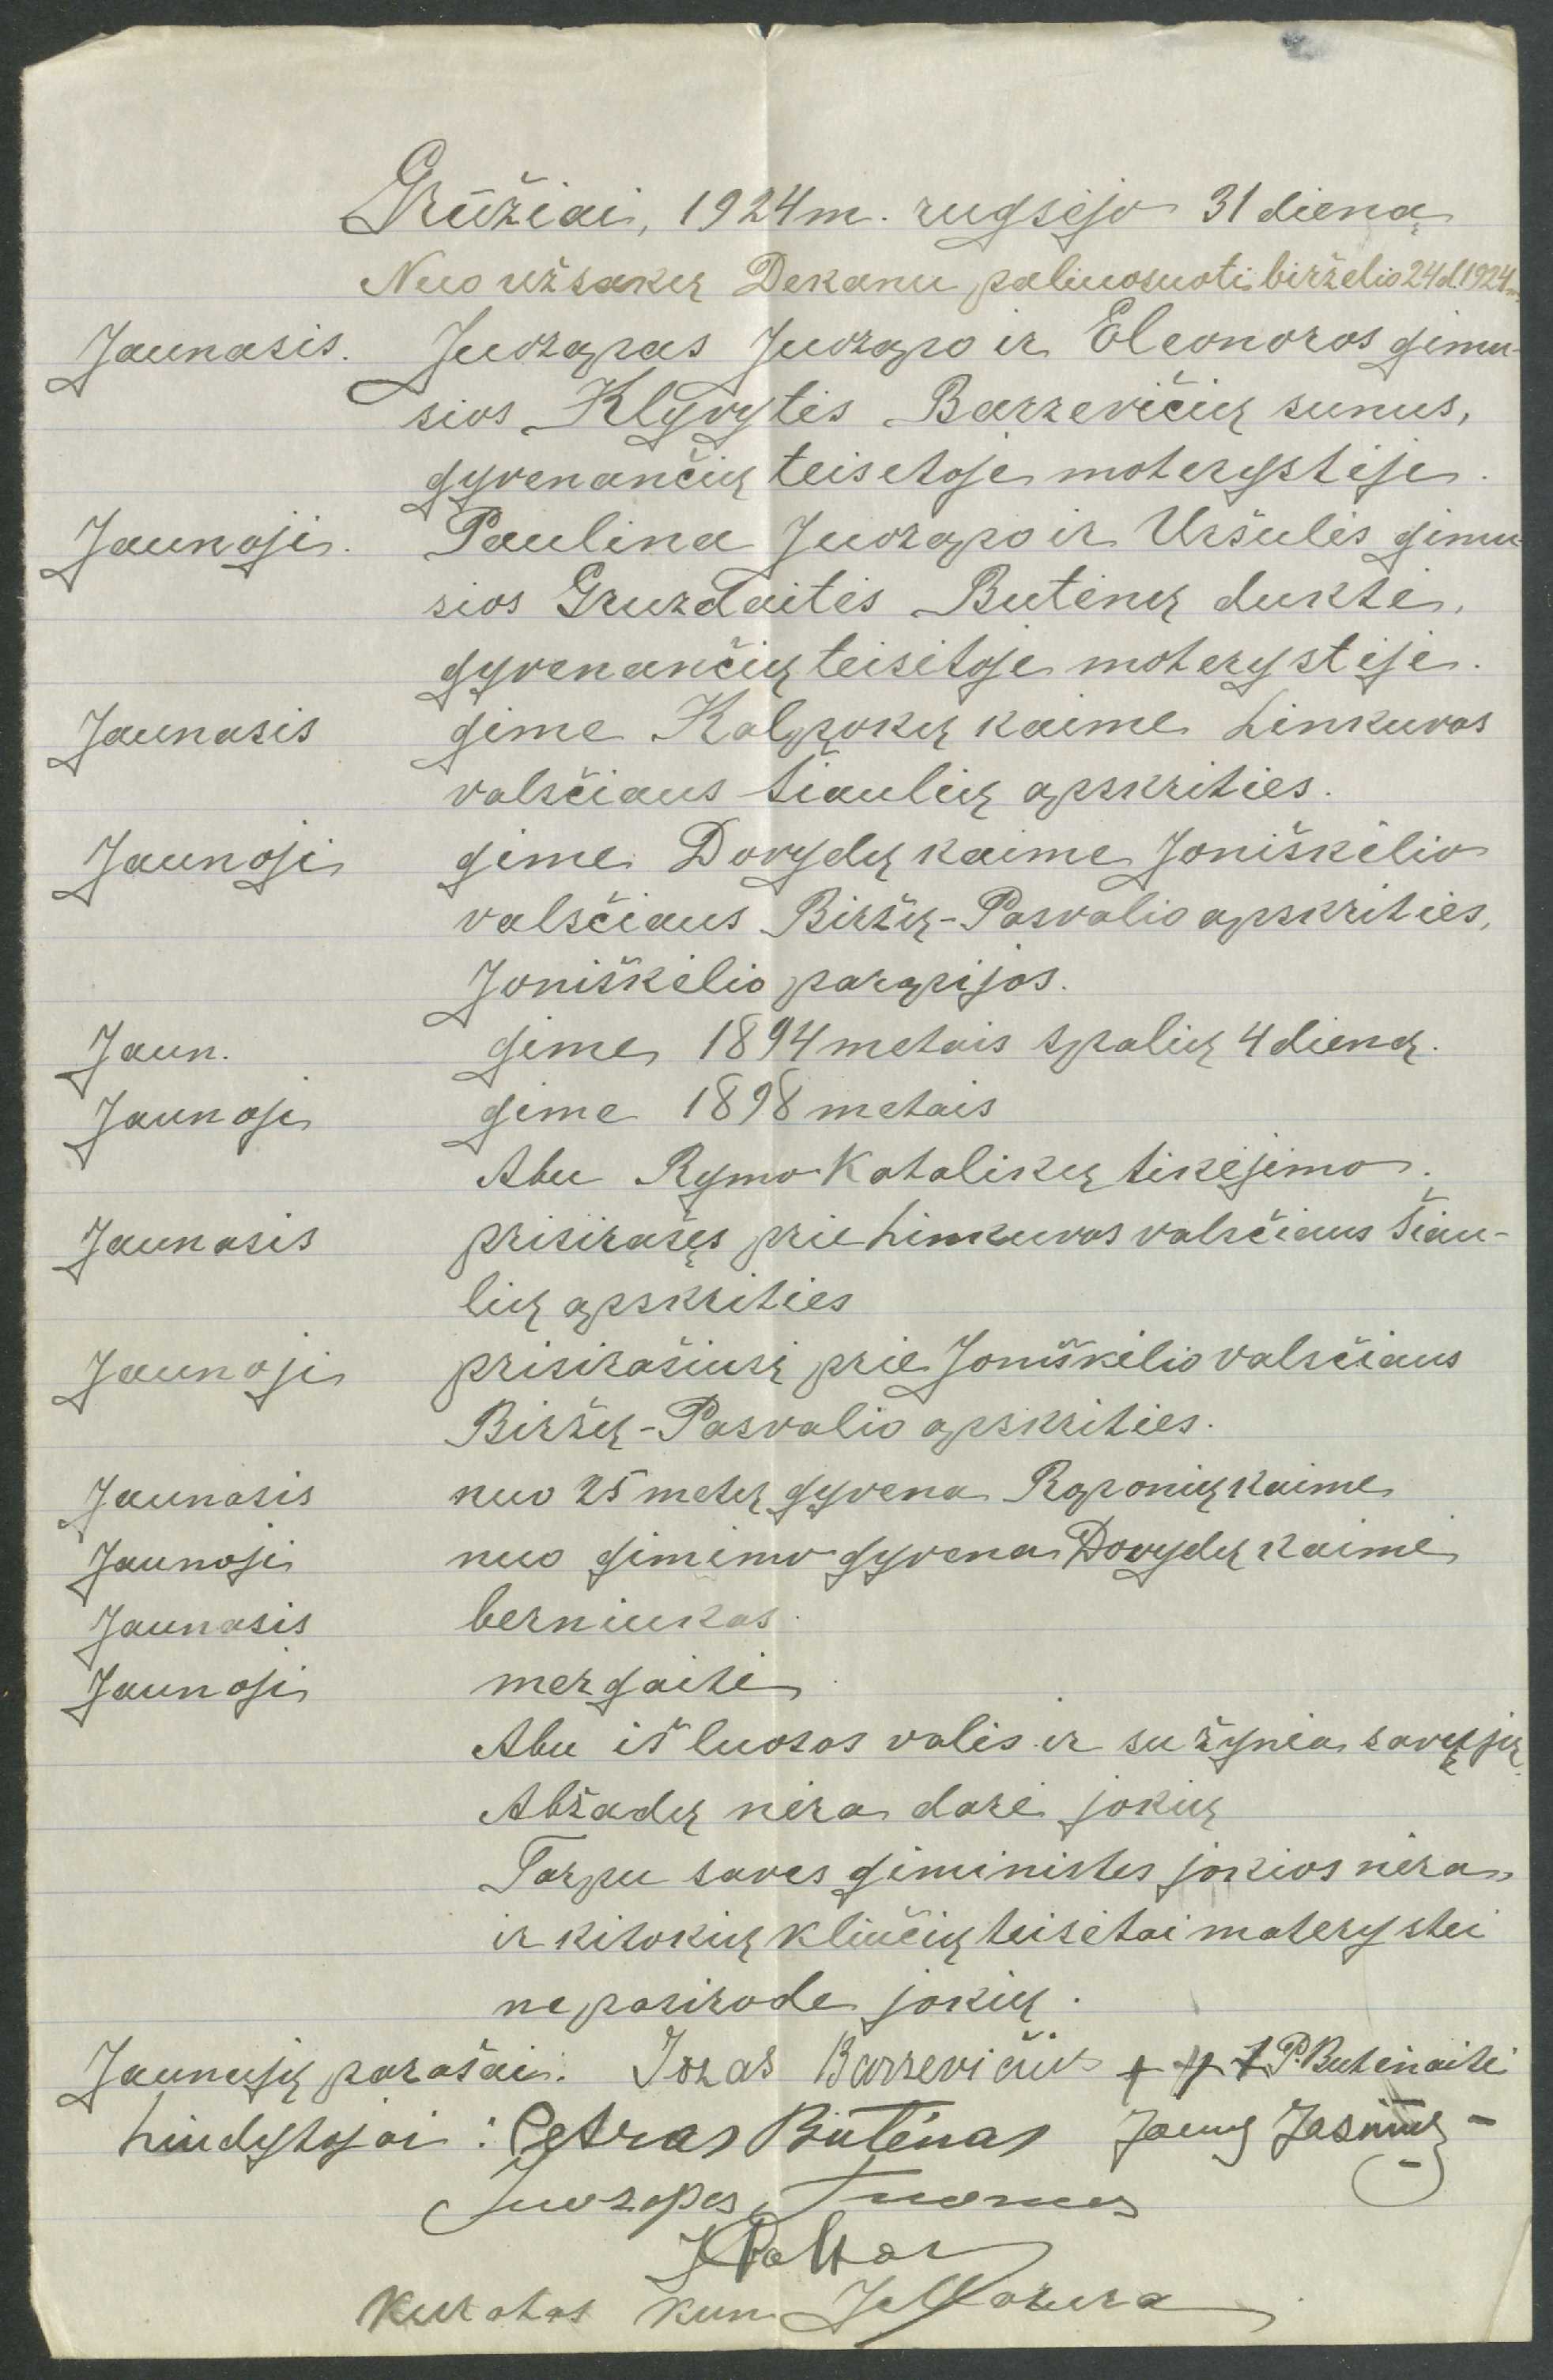 Grūžiai, 1924 m. rugsėjo 31 dieną
Nuo užsakų Dekanu paliuosuoti birželio 24 d. 1924 m.
Jaunasis. Juozapas Juozapo ir Eleonoros gimu-
sios Klyvytės Barzevičių sunus,
gyvenančių teisėtoje moterystėje.
Jaunoji. Paulina Juozapo ir Uršulės gimu-
sios Gruzdaitės Butėnų duktė,
gyvenančių teisėtoje moterystėje.
Jaunasis gime Kalpokų kaime Linkuvos
valsčiaus Šiaulių apskrities.
Jaunoji gime Dovydų kaime Joniškėlio
valsčiaus Biržų-Pasvalio apskrities,
Joniškėlio parapijos.
Jaun. gime 1894 metais spalių 4 dieną.
Jaunoji gime 1898 metais
Abu Rymo Katalikų tikėjimo.
Jaunasis prisirašęs prie Linkuvos valsčiaus Šiau-
lių apskrities
Jaunoji prisirašiusi prie Joniškėlio valsčiaus
Biržų-Pasvalio apskrities.
Jaunasis nuo 25 metų gyvena Raponių kaime
Jaunoji nuo gimimo gyvena Dovydų kaime
Jaunasis berniukas.
Jaunoji mergaitė.
Abu iš luosos valės ir su žynia savųjų.
Abžadų nėra darė jokių
Tarpu savęs giministės jokios nėra
ir kitokių kliučių teisėtai moterystei
nepasirode jokių.
Jaunujų parašai: Jozas Barzevičius + + + P. Butėnaitė
Liudytojai: Petras Butėnas Jonas Jasiūnas
Juozapas Tuomas
kuratas kun.